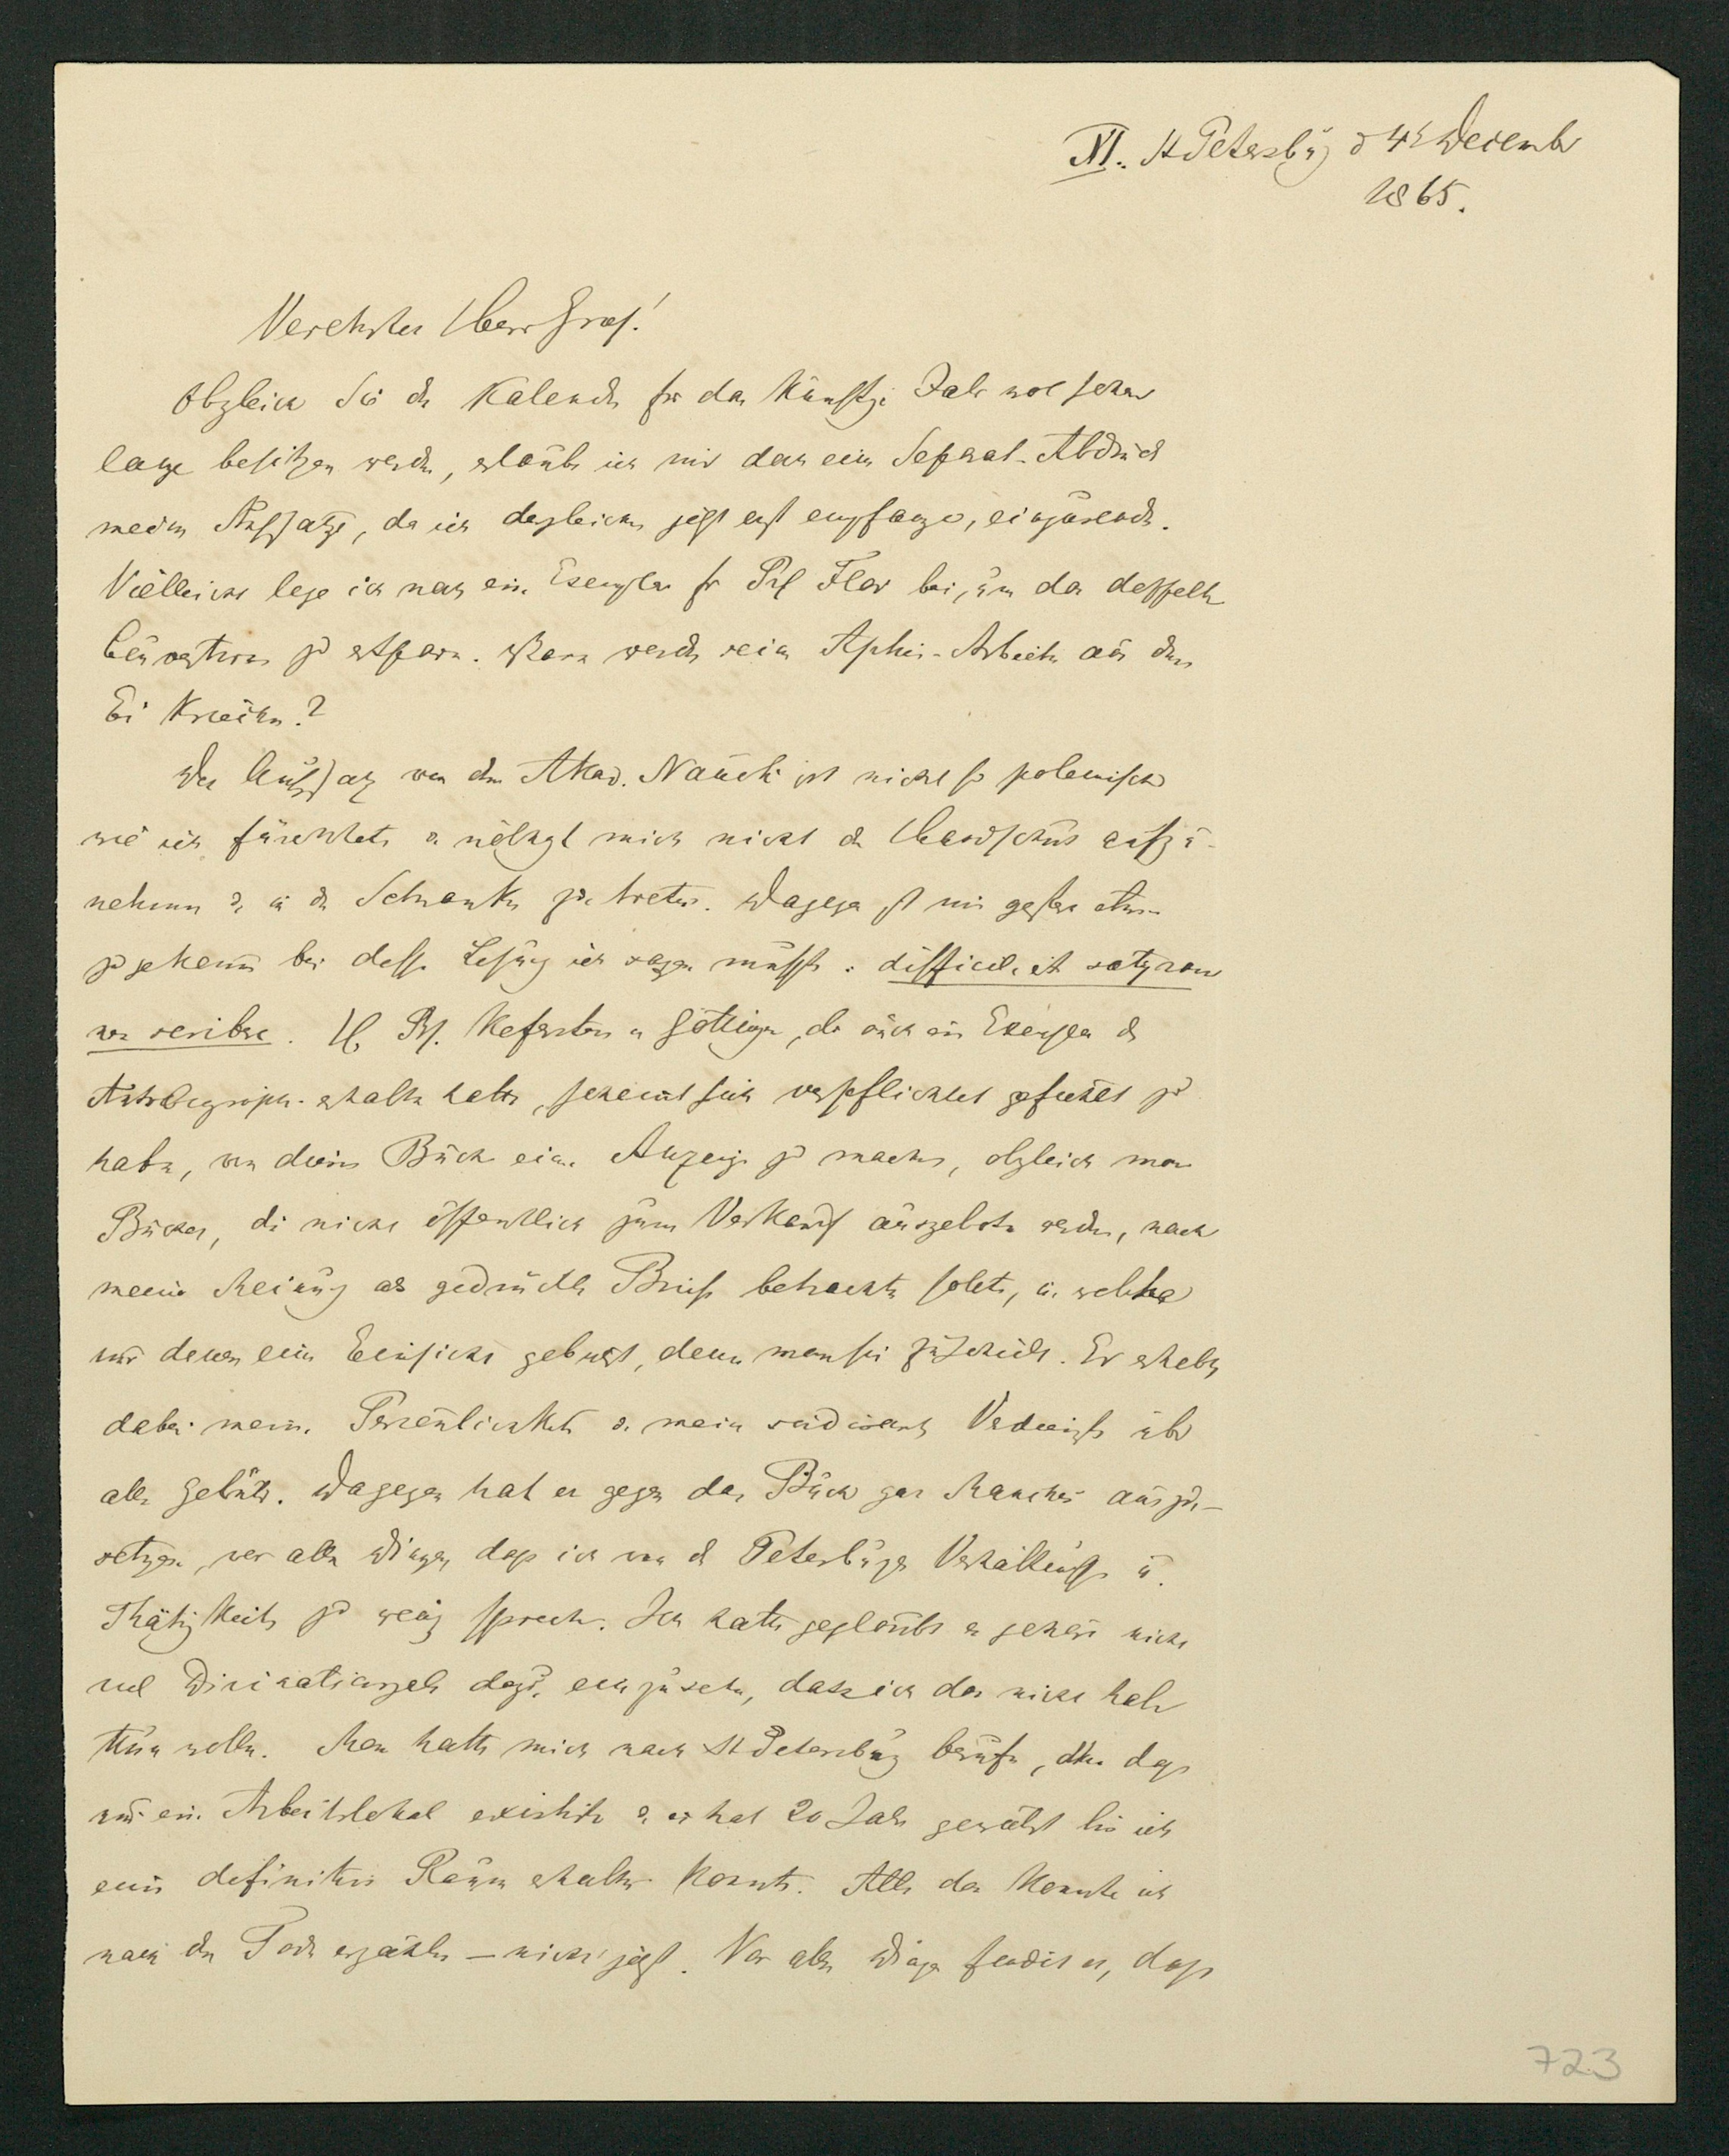 XI. St Petersburg d 4t December
1865.
Verehrter Herr Graf!
Obgleich Sie den Kalender für das künftige Jahr wol schon
lange besitzen werden, erlaube ich mir doch einen Separat-Abdruck
meines Aufsatzes, da ich dergleichen jetzt erst empfange, einzusenden.
Vielleicht lege ich noch ein Exemplar für Prof Flor bei, um das desselben
zu ersparen. Wann werden seine Aphis-Arbeiten aus dem
Ei kriechen?
Der Aufsatz von dem Akad. Nauck ist nicht so polemisch
wie ich fürchtete u nöthigt mich nicht den Handschuh aufzu-
nehmen u in die Schranken zu treten. Dagegen ist mir gestern etwas
zugekommen bei dessen Lesung ich sagen musste: difficile est satyram
non scribere. H. Prof. Keferstein in Göttingen, der auch ein Exemplar der
Autobiographie erhalten hatte, scheint sich verpflichtet gefühlt zu
haben, von diesem Buche eine Anzeige zu machen, obgleich man
Bücher, die nicht öffentlich zum Verkauf ausgeboten werden, nach
meiner Meinung als gedruckte Briefe betrachten sollte, in welche
nur denen eine Einsicht gebührt, denen man sie zuschickt. Er erhebt
dabei meine Persönlichkeit u. meine soidisant Verdienste über
alle Gebühr. Dagegen hat er gegen das Buch gar Manches auszu-
setzen, vor allen Dingen dass ich von den Petersburger Verhältnissen u.
Thätigkeiten zu wenig spreche. Ich hatte geglaubt es gehöre nicht
viel Divinationsgabe dazu, einzusehen, dass ich das nicht habe
thun wollen. Man hatte mich nach St Petersburg berufen, ohne dass
nur ein Arbeitslokal existirte u. es hat 20 Jahre gewährt bis ich
einen definitiven Raum erhalten konnte. Alles das konnte ich
nach dem Tode erzählen – nicht jetzt. Vor allen Dingen findet er, dass
723